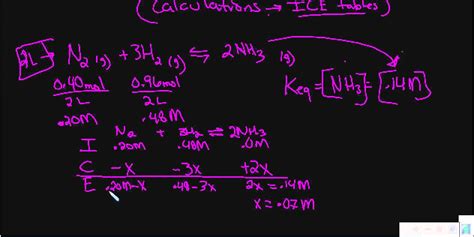 (Calculations → ICE tables)
2L → N₂(g) + 3H₂(g) ⇌ 2NH₃(g)
0.40mol 0.96mol Keq = [NH₃] = [.14M]
2L 2L
.20M .48M
N₂ + 3H₂ ⇌ 2NH₃
I .20M .48M .0M
C -x -3x +2x
E .20M-x .48-3x 2x = .14M
x = .07M